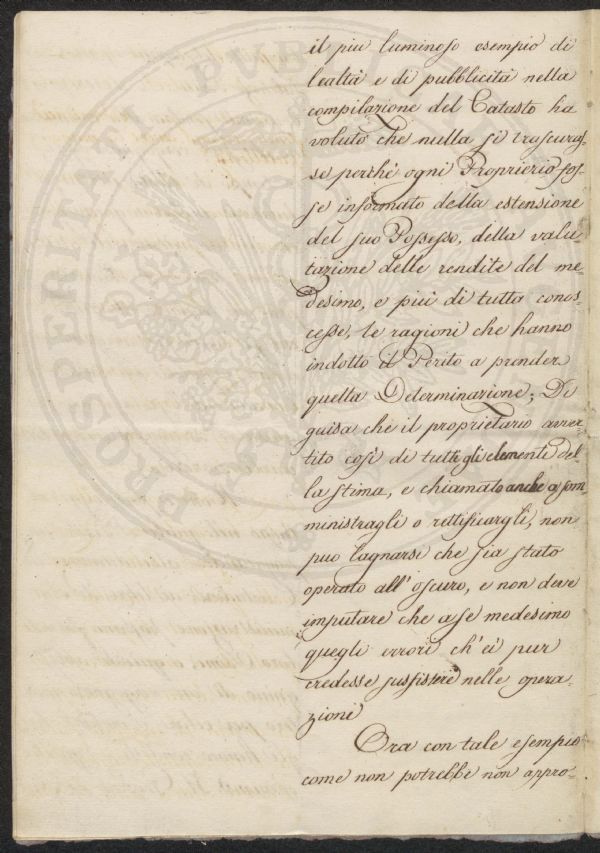 il piu luminoso esempio di
lealtà e di pubblicità nella
compilazione del Catasto ha
voluto che nulla si trascuras-
se perchè ogni Proprierio fos-
se informato della estensione
del suo Possesso, della valu-
tazione delle rendite del me-
desimo, e più di tutto conos-
cesse, le ragioni che hanno
indotto il Perito a prender
quella Determinazione; Di
guisa che il proprietario avver-
tito così di tutti gli elementi del-
la stima, e chiamato anche a som-
ministragli o rettificargli, non
puo lagnarsi che sia stato
operato all'oscuro, e non deve
imputare che a se medesimo
quegli errori ch'ei pur
credesse sussistere nelle opera-
zioni
Ora con tale esempio
come non potrebbe non appro-
PROSPERITATI PUBL